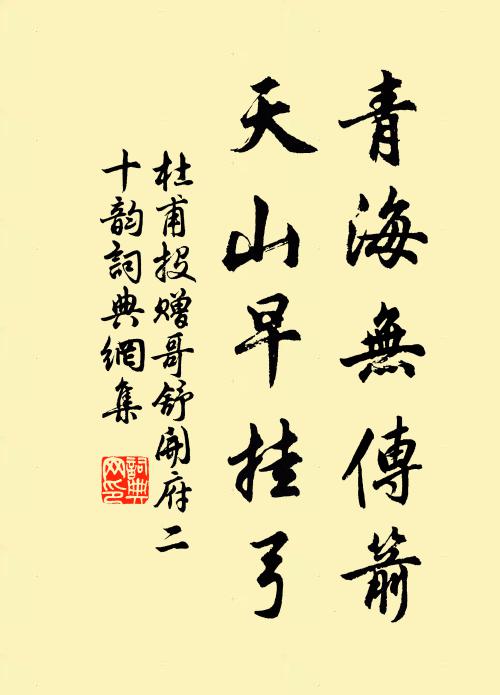 青海無傳箭
天山早挂弓
杜甫投贈哥舒開府二
十韵詞典網集
詞典
网印